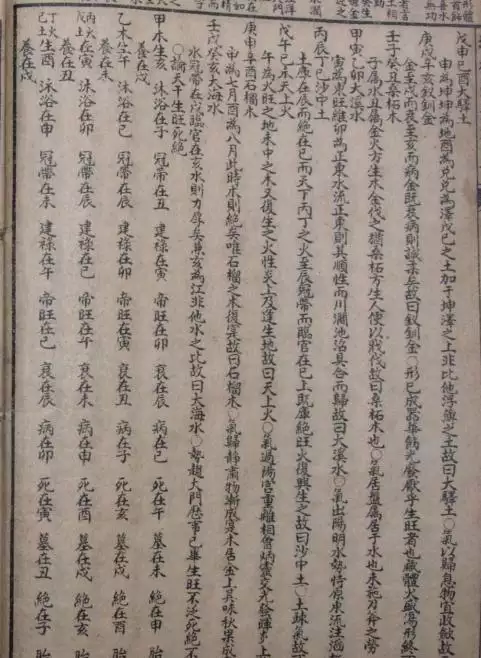 戊申己酉大驛土
申為坤坤為地酉為兌兌為澤戊己之土加于坤澤之上非比他浮薄之土故曰大驛土〇氣以歸息物宜收斂故
庚戌辛亥釵釧金
金至戌而衰至亥而病金既衰病則誠柔矣故曰釵釧金〇形已成器華飾光發厭乎生旺者也藏體火盛傷形終
壬子癸丑桑柘木
子屬水丑屬金水方生木金伐之猶桑柘方生人便以戕伐故曰桑柘木也〇氣居盤屬居于水也未施刀斧之勞
甲寅乙卯大溪水
寅為東旺維卯為正東水流正東則其順性而川澗池沼具合而歸故曰大溪水〇氣出陽明水勢恃原東流注滔
丙辰丁巳沙中土
土庫在辰而絕在巳而天丁丙丁之火至辰冠帶而臨官在巳土既庫絕旺火復興生之故曰沙中土〇土疎氣故
戊午己未天上火
午為火旺之地未中之木又復生之火性炎上及逢生地故曰天上火〇氣過陽宮重離相會炳靈交光發暉炎上
庚申辛酉石榴木
申為七月酉為八月此時木則絕矣唯石榴之木復實故曰石榴木〇氣歸靜肅物漸成實木居金上其味秋果成
壬戌癸亥大海水
水冠帶在戌臨官在亥水則力厚矣兼亥為江非他水之比故曰大海水〇勢趨大門歷事已畢生旺不泛死絕不
〇論天干生旺死絕
甲木生亥 沐浴在子 冠帶在丑 建祿在寅 帝旺在卯 衰在辰 病在巳 死在午 墓在未 絕在申 胎
養在戌
乙木生午 沐浴在巳 冠帶在辰 建祿在卯 帝旺在寅 衰在丑 病在子 死在亥 墓在戌 絕在酉 胎
丙火戊土生在寅 沐浴在卯 冠帶在辰 建祿在巳 帝旺在午 衰在未 病在申 死在酉 墓在戌 絕在亥 胎
養在丑
丁火己土生酉 沐浴在申 冠帶在未 建祿在午 帝旺在巳 衰在辰 病在卯 死在寅 墓在丑 絕在子 胎
養在戌